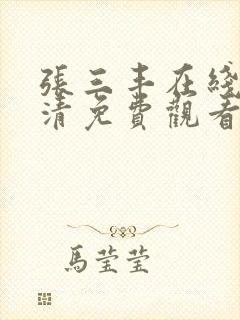 張三丰在綫
清免費觀看
馬瑩瑩